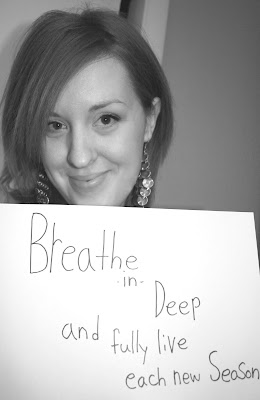 Breathe
-in-
Deep
and fully live
each new Season